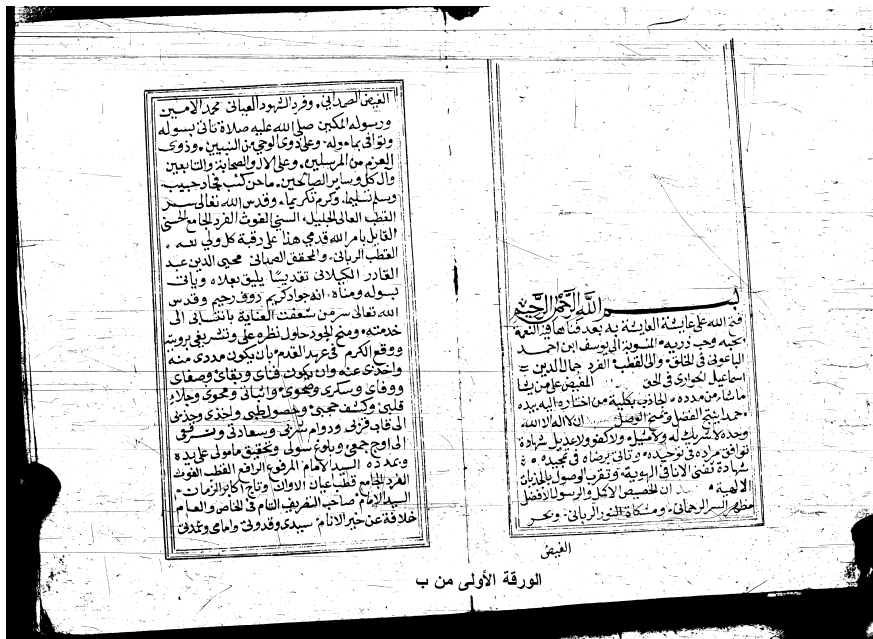 بسم الله الرحمن الرحيم
فتح الله على عايشة العايشة به بعد فناها في النعمة
بحبه وحب ذريه المنسوبة الى يوسف ابن احمد
الباعوني في الخلق والى القطب الفرد جمال الدين
اسماعيل الحواري في الحق المفيض على من يشا
ما شا من مدده الجاذب بكلية من اختاره اليه بيده
حمدا ينتج الفضل ويمنح الوصل ان لا اله الا الله
وحده لا شريك له ولا مثيل ولا كفو ولا عديل شهادة
توافق مراده في توحيده وتاتي برضاه في تمجيده
شهادة تفني الانا في الهوية وتقرب الوصول بالجذبات
الالهية ان الخصيص الاكمل والرسول الافضل
مظهر السر الرحماني ومشكاة النور الرباني وبحر
الفيض
الفيض الصمداني وفرد الشهود العياني محمد الامين
ورسوله المكين صلى الله عليه صلاة تاتي بسوله
وتوافي بمأموله وعلى ذوي الوحي من النبيين وذوي
العزم من المرسلين وعلى الال والصحابة والتابعين
وآل كل وساير الصالحين ما حن كئب فجاد حبيب
وسلم تسليما وكرم تكريما وقدس الله تعالى سر
القطب العالي الجليل السني الغوث الفرد الجامع الحسني
القايل بامر الله قدمي هذا على رقبة كل ولي لله
القطب الرباني والمحقق الصمداني محيي الدين عبد
القادر الكيلاني تقديسا يليق بعلاه وياتي
بسوله ومناه انه جواد كريم روف رحيم وقدس
الله تعالى سر من سبقت العناية بانتسابي الى
خدمته ومنح الجود حلول نظره علي وتشريفي برويته
ووقع الكرم في عهد القدم بان يكون مددي منه
واخذي عنه وان يكون فناي وبقاي وصفاي
ووفاي وسكري وصحوي واثباتي ومحوي وجلاء
قلبي وكشف حجبي وحصول طبي واخذي وجذبي
الى قاب قربي ودوام شربي وسعادتي وترقي
الى اوج جمعي وبلوغ سولي وتحقيق مامولي على يده
وبمدده السيد الامام المرفوع الرافع القطب الغوث
الفرد الجامع قطب اعيان الاوان وتاج اكابر الزمان
السيد الامام صاحب التصريف التام في الخاص والعام
خلافة عن خير الانام سيدي وقدوتي وامامي وعمدتي
الورقة الأولى من ب